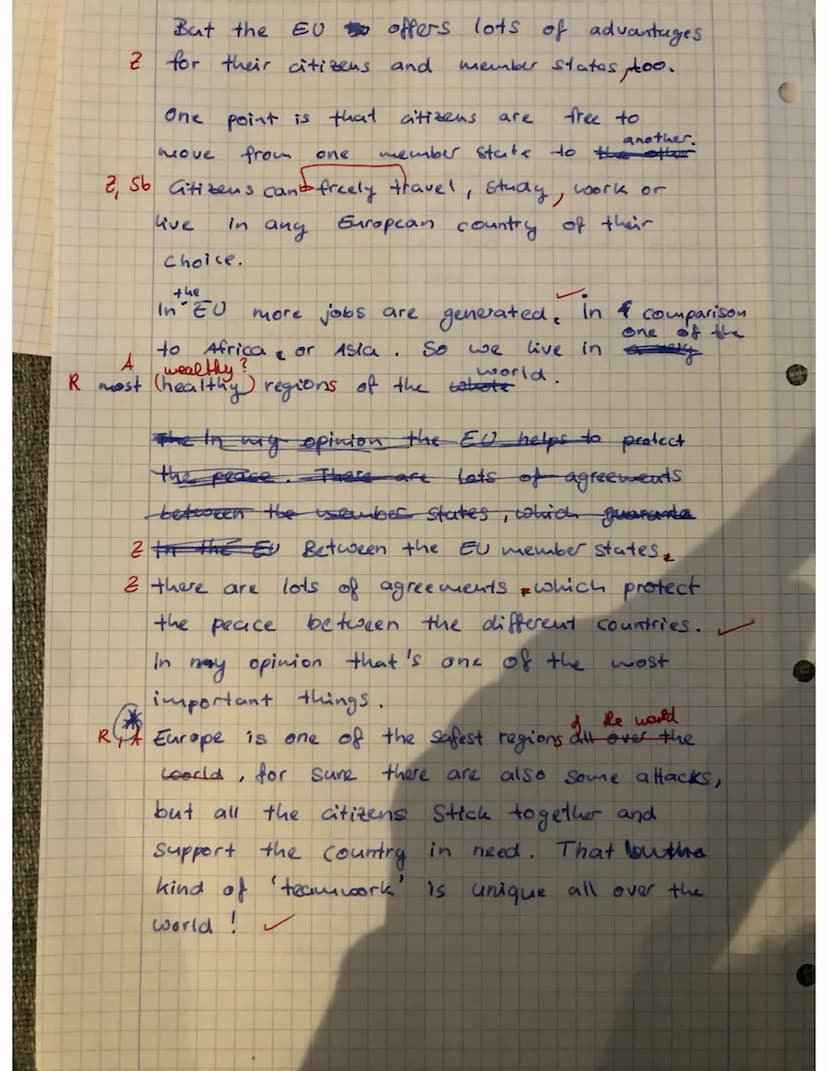 But the EU offers lots of advantages
Z for their citizens and member states, too.
One point is that citizens are free to
another.
move from one member state to the other
Z, Sb Citizens can freely travel, study, work or
live in any European country of their
choice.
the
In EU more jobs are generated, in comparison
one of the
to Africa, or Asia. So we live in
A wealthy?
world.
R most (healthy) regions of the whole
The In my opinion the EU helps to protect
the peace. There are lots of agreements
between the member states, which guarante
Z In the EU Between the EU member states,
Z there are lots of agreements, which protect
the peace between the different countries.
In my opinion that's one of the most
important things.
of the world
R, A Europe is one of the safest regions all over the
world, for sure there are also some attacks,
but all the citizens stick together and
support the country in need. That
kind of 'teamwork' is unique all over the
world!